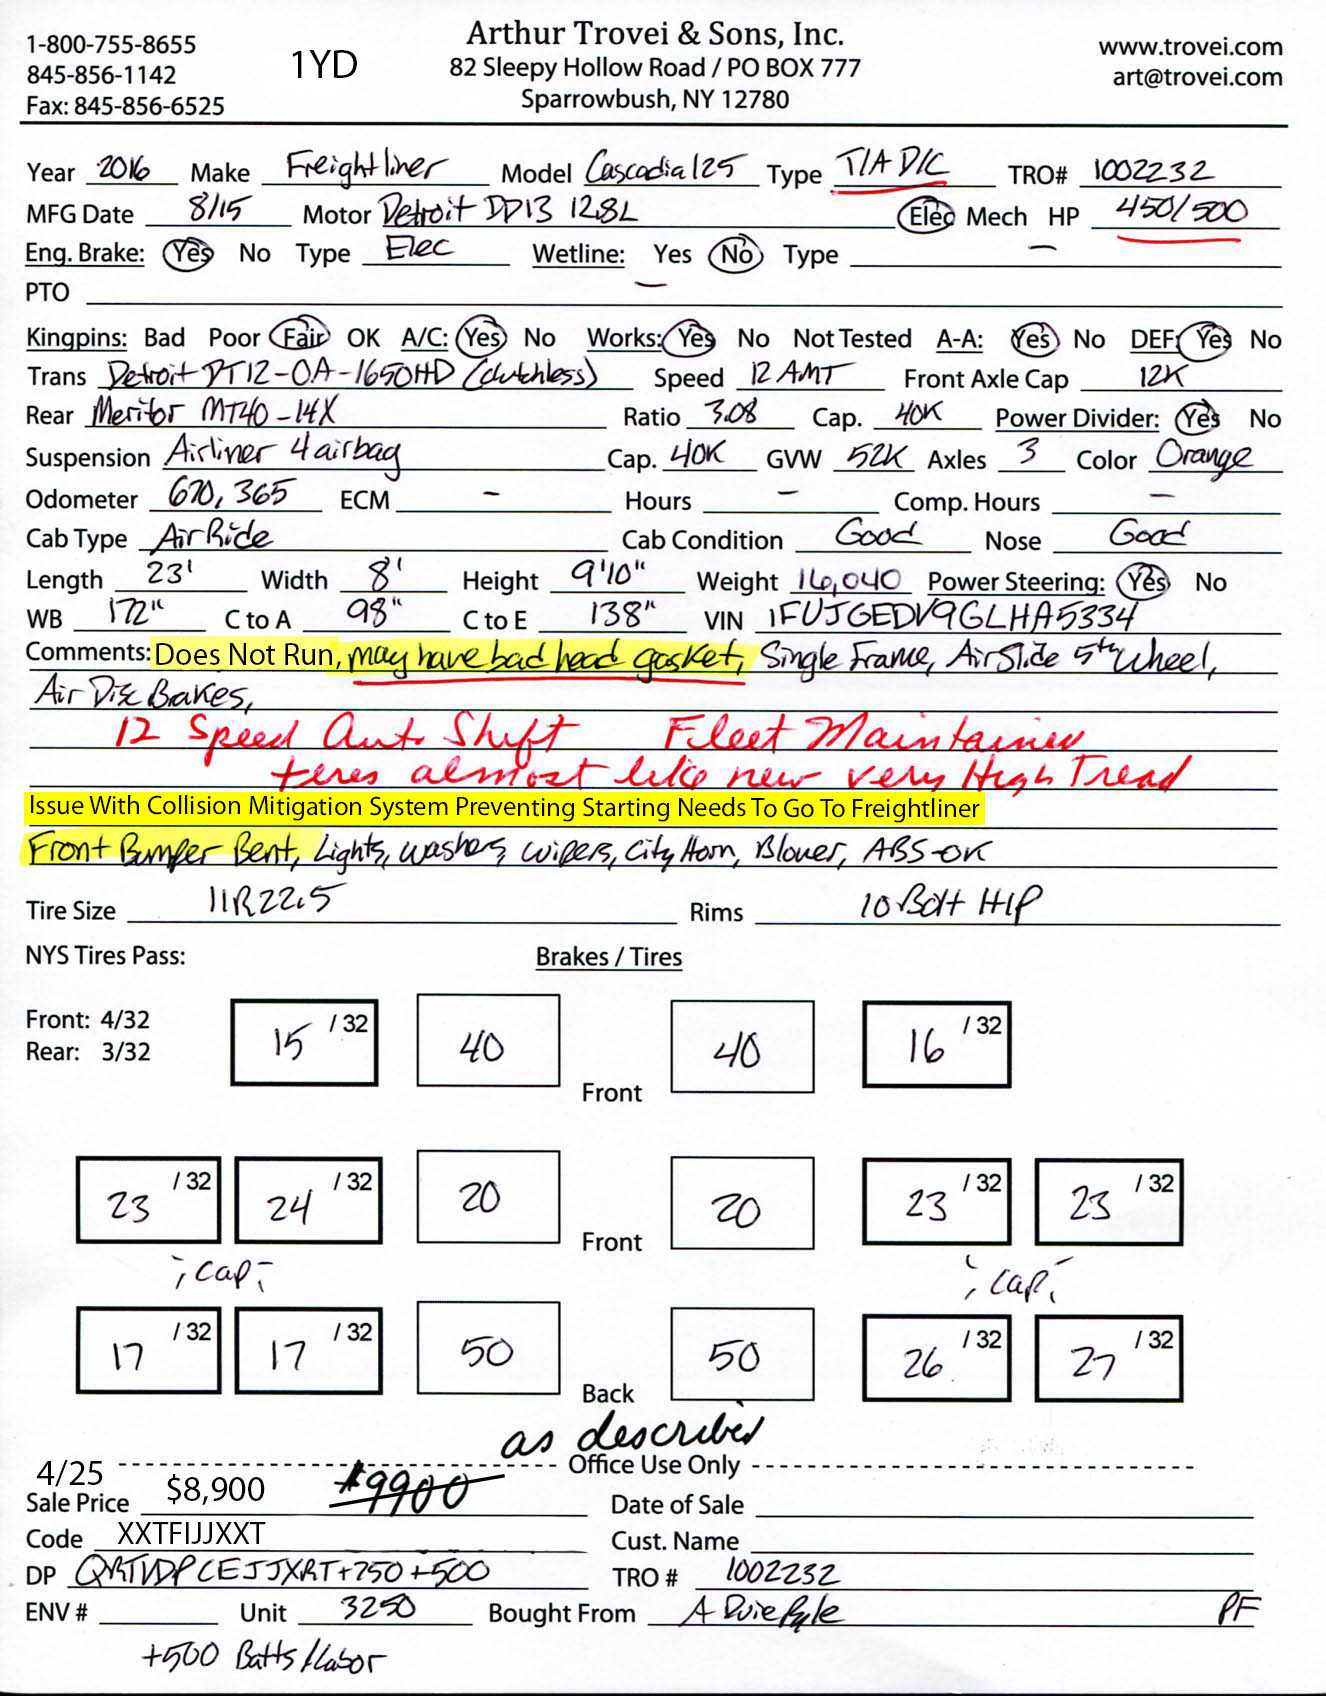 Arthur Trovei & Sons, Inc.
1-800-755-8655 1YD 82 Sleepy Hollow Road / PO BOX 777 www.trovei.com
845-856-1142 Sparrowbush, NY 12780 art@trovei.com
Fax: 845-856-6525
Year 2016 Make Freightliner Model Cascadia125 Type T/A D/C TRO# 1002232
MFG Date 8/15 Motor Detroit DD13 12.8L Elec Mech HP 450/500
Eng. Brake: Yes No Type Elec Wetline: Yes No Type —
PTO —
Kingpins: Bad Poor Fair OK A/C: Yes No Works: Yes No Not Tested A-A: Yes No DEF: Yes No
Trans Detroit DT12-OA-1650HD (clutchless) Speed 12 AMT Front Axle Cap 12K
Rear Meritor MT40-14X Ratio 3.08 Cap. 40K Power Divider: Yes No
Suspension Airliner 4 airbag Cap. 40K GVW 52K Axles 3 Color Orange
Odometer 670,365 ECM - Hours - Comp. Hours -
Cab Type Air Ride Cab Condition Good Nose Good
Length 23' Width 8' Height 9'10" Weight 16,040 Power Steering: Yes No
WB 172" C to A 98" C to E 138" VIN 1FUJGEDV9GLHA5334
Comments: Does Not Run, may have bad head gasket, Single Frame, Air Slide 5th Wheel,
Air Disc Brakes,
12 Speed Auto Shift Fleet Maintained
tires almost like new very High Tread
Issue With Collision Mitigation System Preventing Starting Needs To Go To Freightliner
Front Bumper Bent, Lights, washers, wipers, City Horn, Blower, ABS-OK
Tire Size 11R22.5 Rims 10 Bolt H/P
NYS Tires Pass: Brakes / Tires
Front: 4/32 15 /32 40 40 16 /32
Rear: 3/32
Front
23 /32 24 /32 20 20 23 /32 23 /32
Front
cap cap
17 /32 17 /32 50 50 26 /32 27 /32
Back
as described
4/25 Office Use Only
Sale Price $8,900 $9900 Date of Sale
Code XXTFIJJXXT Cust. Name
DP QRTVDPCEJJXRT+750+500 TRO # 1002232
ENV # Unit 3250 Bought From A Duie Pyle PF
+500 Batts/Labor